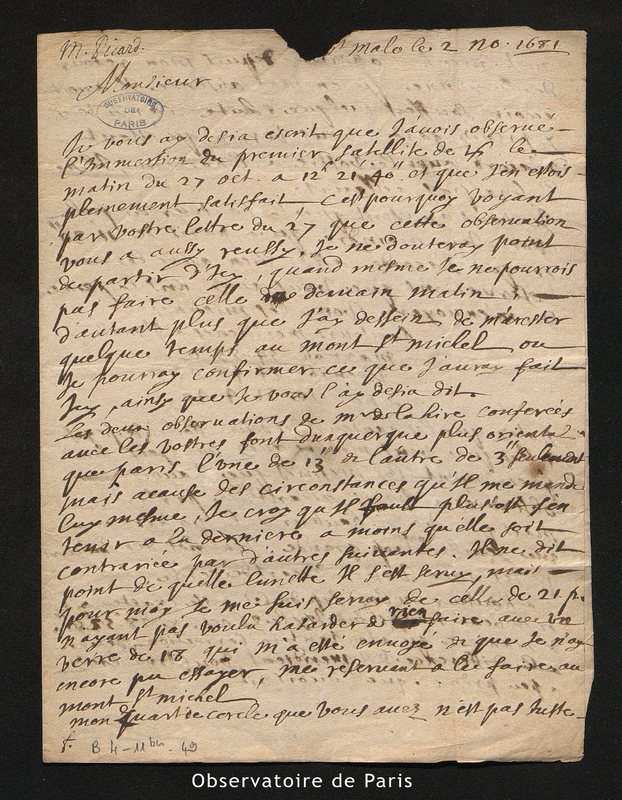 M. Picard.
St malo le 2 no. 1681
Monsieur
OBSERVATOIRE
DE
PARIS
Je vous ay desia escrit que J'avois observé
l'Immersion du premier satellite de ♃ le
matin du 27 oct. a 12h 21' 40" et que J'en estois
pleinement satisfait c'est pourquoy voyant
par vostre lettre du 27 que cette observation
vous a aussy reussy, Je ne douteray point
de partir d'Icy, quand mesme Je ne pourrois
pas faire celle de demain matin
d'autant plus que J'ay dessein de m'arester
quelque temps au mont St michel ou
Je pourray confirmer ce que J'auray fait
Icy, ainsy que Je vous l'ay desia dit.
Les deux observations de mr de la hire conferées
avec les vostres font dunquerque plus oriental
que paris l'une de 13" et l'autre de 3" seulement
mais acause des circonstances qu'Il me mande
luy mesme, Je croy qu'Il faut plustost s'en
tenir a la derniere a moins qu'elle soit
contrariée par d'autres suivantes. Il ne dit
point de quelle lunette Il s'est servy, mais
pour moy Je me suis servy de celle de 21 p.
n'ayant pas voulu hasarder de rien faire avec un
verre de 18 qui m'a esté envoyé et que Je n'ay
encore pu essayer, me reservant a le faire au
mont St michel
mon quart de cercle que vous avez n'est pas Juste
f. B 4-11 bis 49
Observatoire de Paris